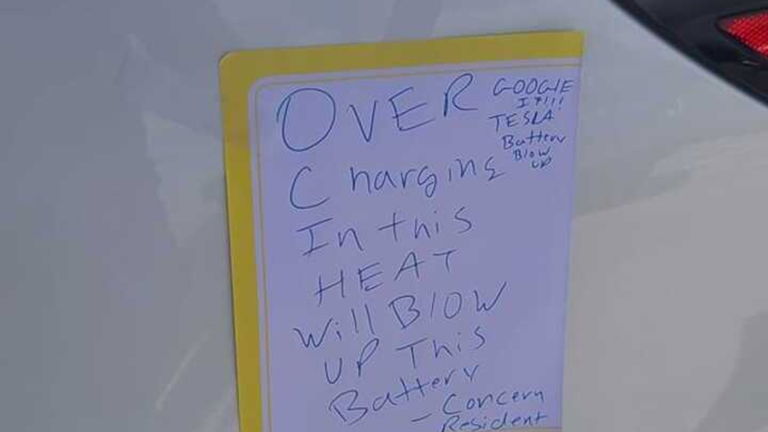 OVER
Charging
In this
HEAT
will BLOW
UP This
Battery
- Concern
Resident
GOOGLE
IT!!!
TESLA
Battery
Blow
up